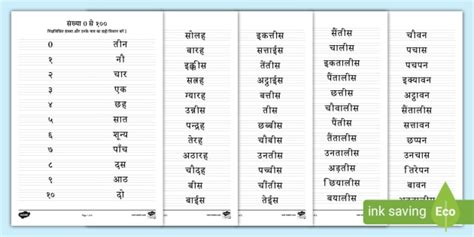 संख्या 0 से १००
0 तीन
१ नौ
२ चार
३ एक
४ छह
५ सात
६ शून्य
७ पाँच
८ दस
९ आठ
१० दो
सोलह
बारह
इक्कीस
सत्रह
ग्यारह
उन्नीस
पन्द्रह
तेरह
अठारह
चौदह
बीस
बाईस
सत्ताईस
अट्ठाईस
तीस
छब्बीस
पच्चीस
चौबीस
तेईस
सैंतीस
चालीस
छत्तीस
चवालीस
पैंतीस
इकतालीस
तैंतालीस
अड़तीस
छियालीस
बयालीस
चौवन
पचास
पचपन
इक्यावन
अट्ठावन
सैंतालीस
छप्पन
उनचास
तिरेपन
बावन
ink saving Eco